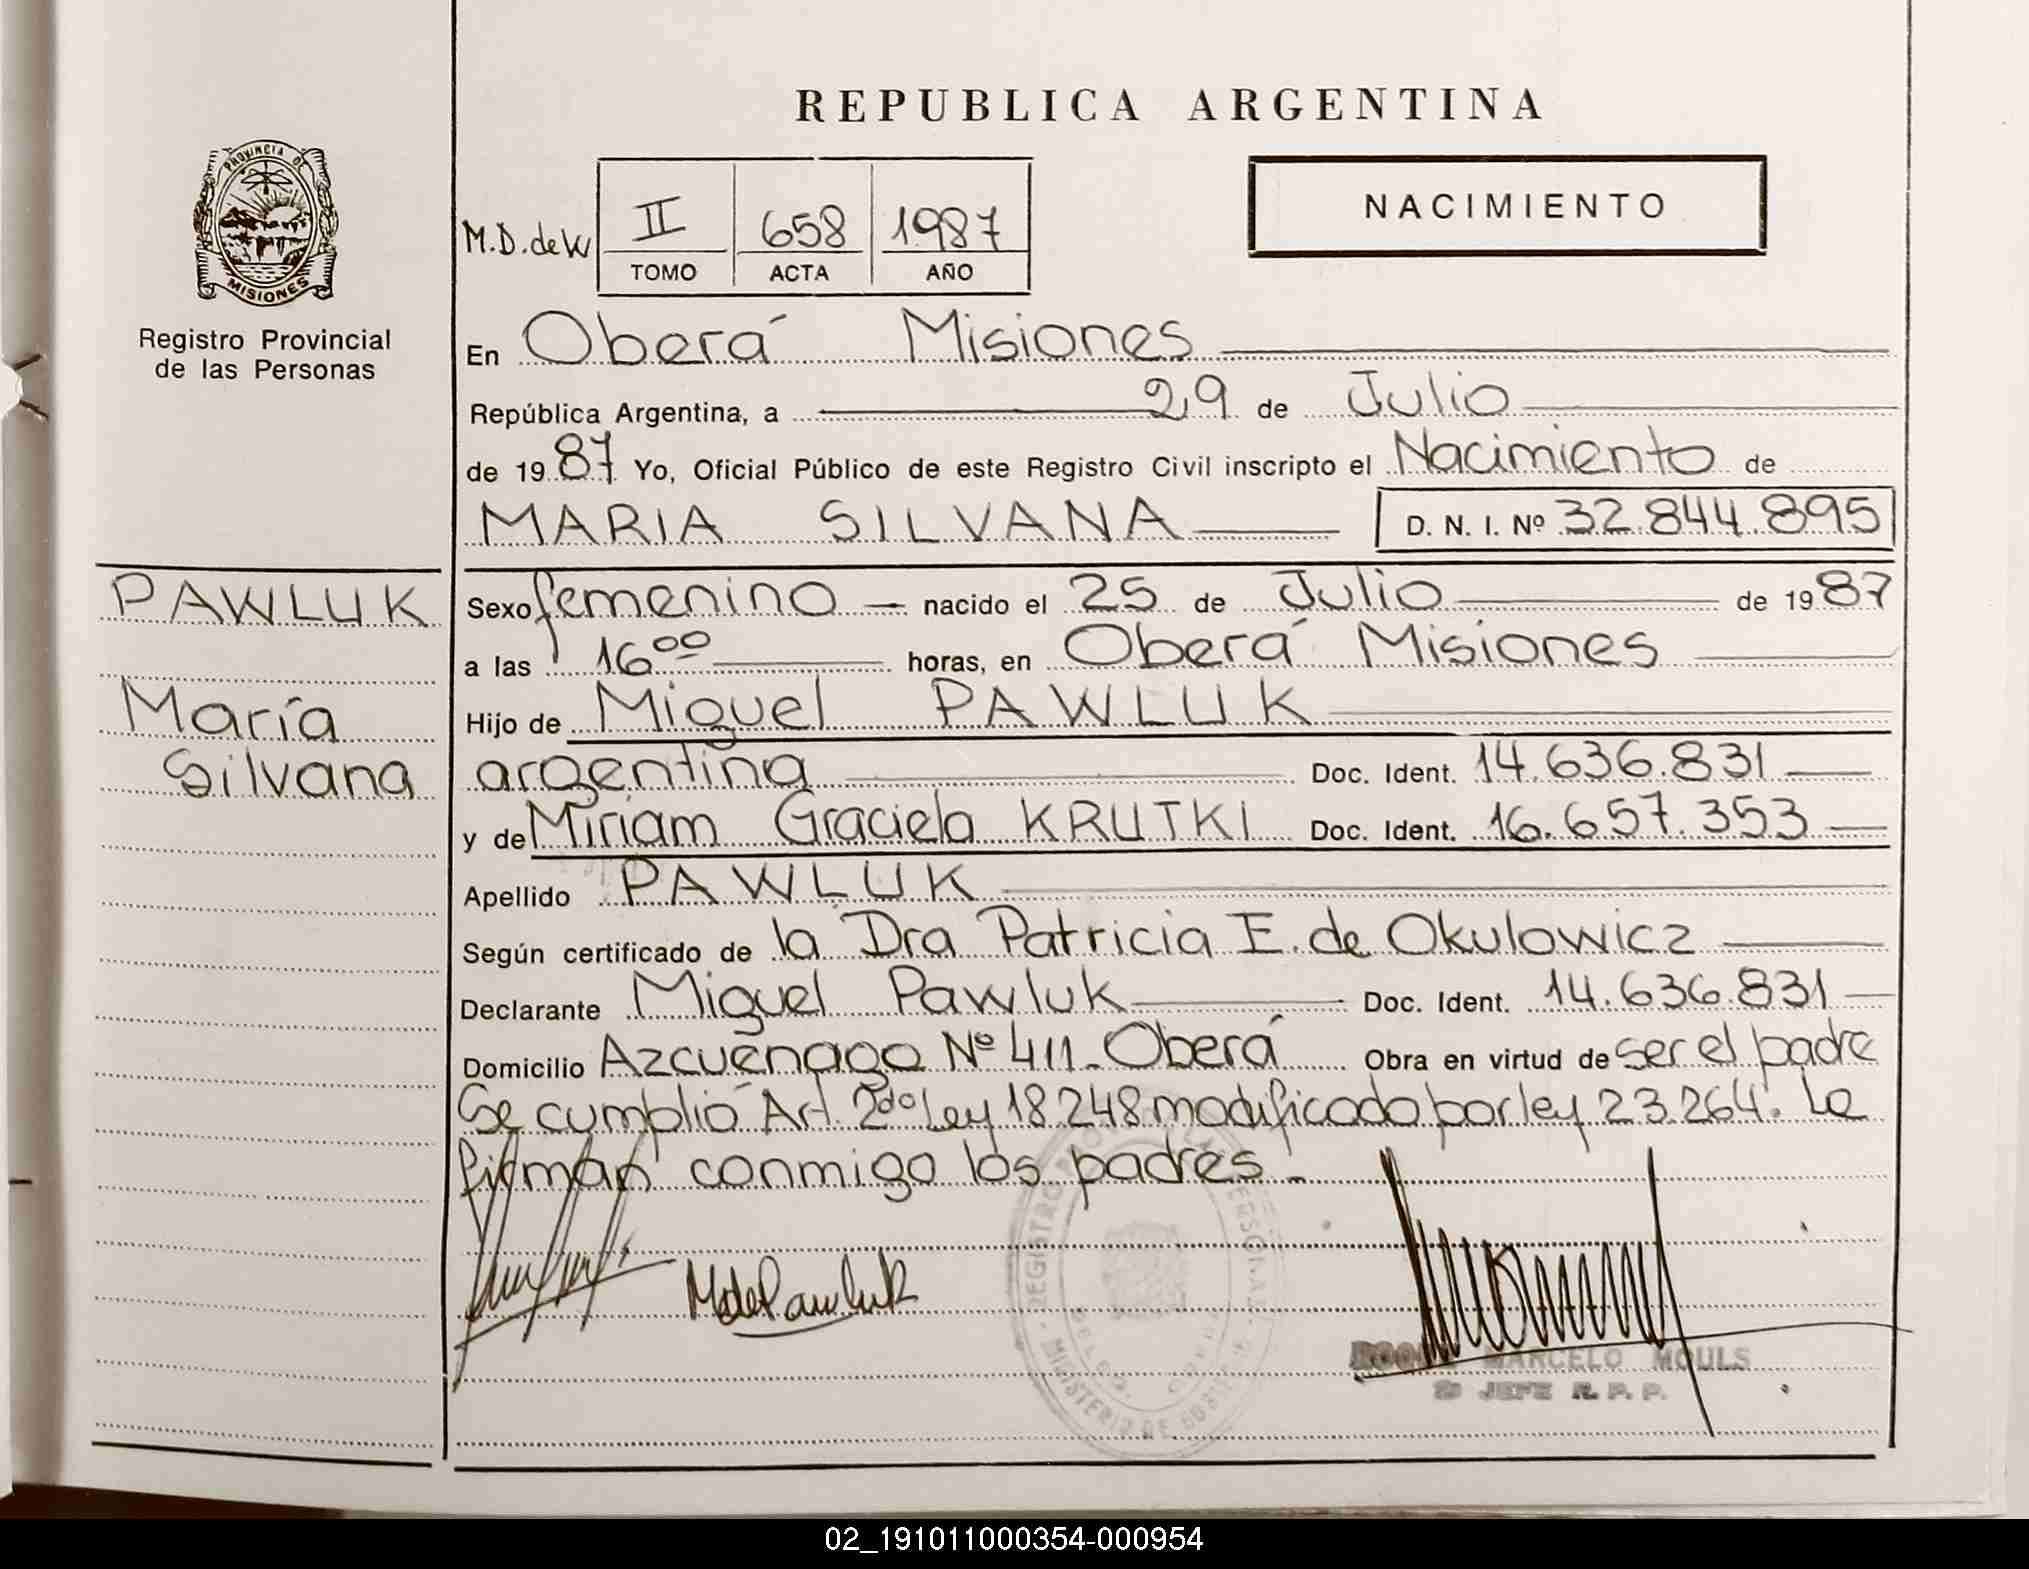 REPUBLICA ARGENTINA
PROVINCIA DE
MISIONES
Registro Provincial
de las Personas
NACIMIENTO
M.D. de W
II 658 1987
TOMO ACTA AÑO
En Oberá Misiones
República Argentina, a 29 de Julio
de 1987 Yo, Oficial Público de este Registro Civil inscripto el Nacimiento de
MARIA SILVANA D. N. I. Nº 32.844.895
PAWLUK
María
Silvana
Sexo femenino nacido el 25 de Julio de 1987
a las 16⁰⁰ horas, en Oberá Misiones
Hijo de Miguel PAWLUK
argentina Doc. Ident. 14.636.831
y de Miriam Graciela KRUTKI Doc. Ident. 16.657.353
Apellido PAWLUK
Según certificado de la Dra Patricia E. de Okulowicz
Declarante Miguel Pawluk Doc. Ident. 14.636.831
Domicilio Azcuénaga Nº 411. Oberá Obra en virtud de ser el padre
Se cumplió Art. 2do Ley 18248 modificado por ley 23.264. La
firman conmigo los padres.
M de Pawluk
REGISTRO PERSONAS
MINISTERIO DE
MARCELO MOULS
JEFE R. P. P.
02_191011000354-000954